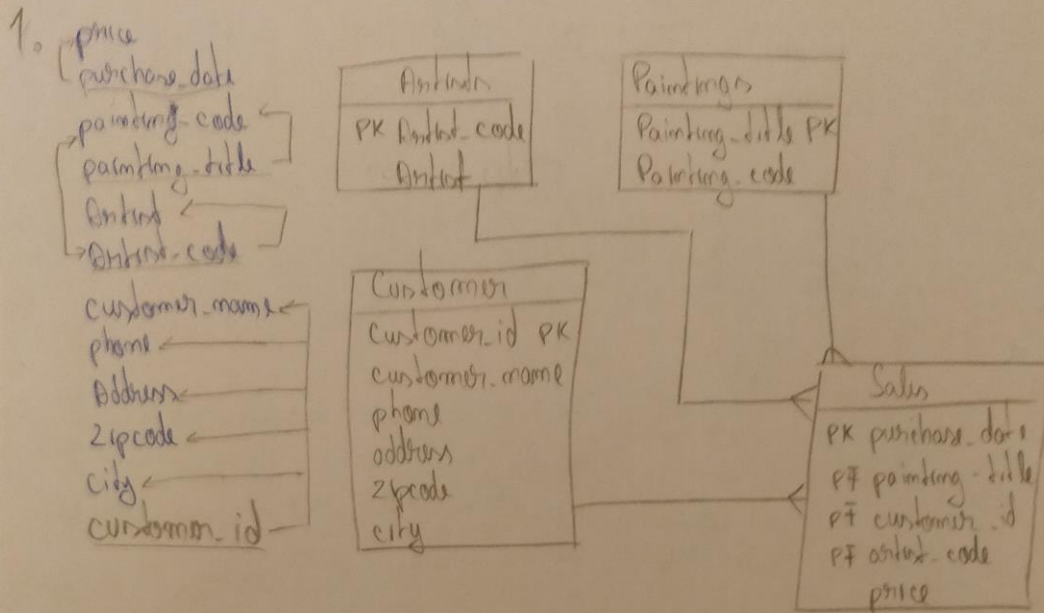 1.
price
purchase_date
painting_code
painting_title
Artist
Artist_code
customer_name
phone
Address
Zipcode
city
customer_id
Artists
PK Artist_code
Artist
Paintings
Painting_title PK
Painting_code
Customer
Customer_id PK
customer_name
phone
address
zipcode
city
Sales
PK purchase_date
PF painting_title
PF customer_id
PF artist_code
price